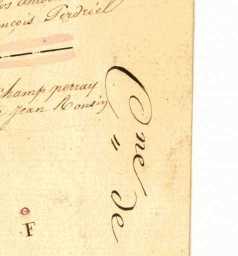 nçois Perdriel
Champ perray
Jean Rousin
Cne de
F